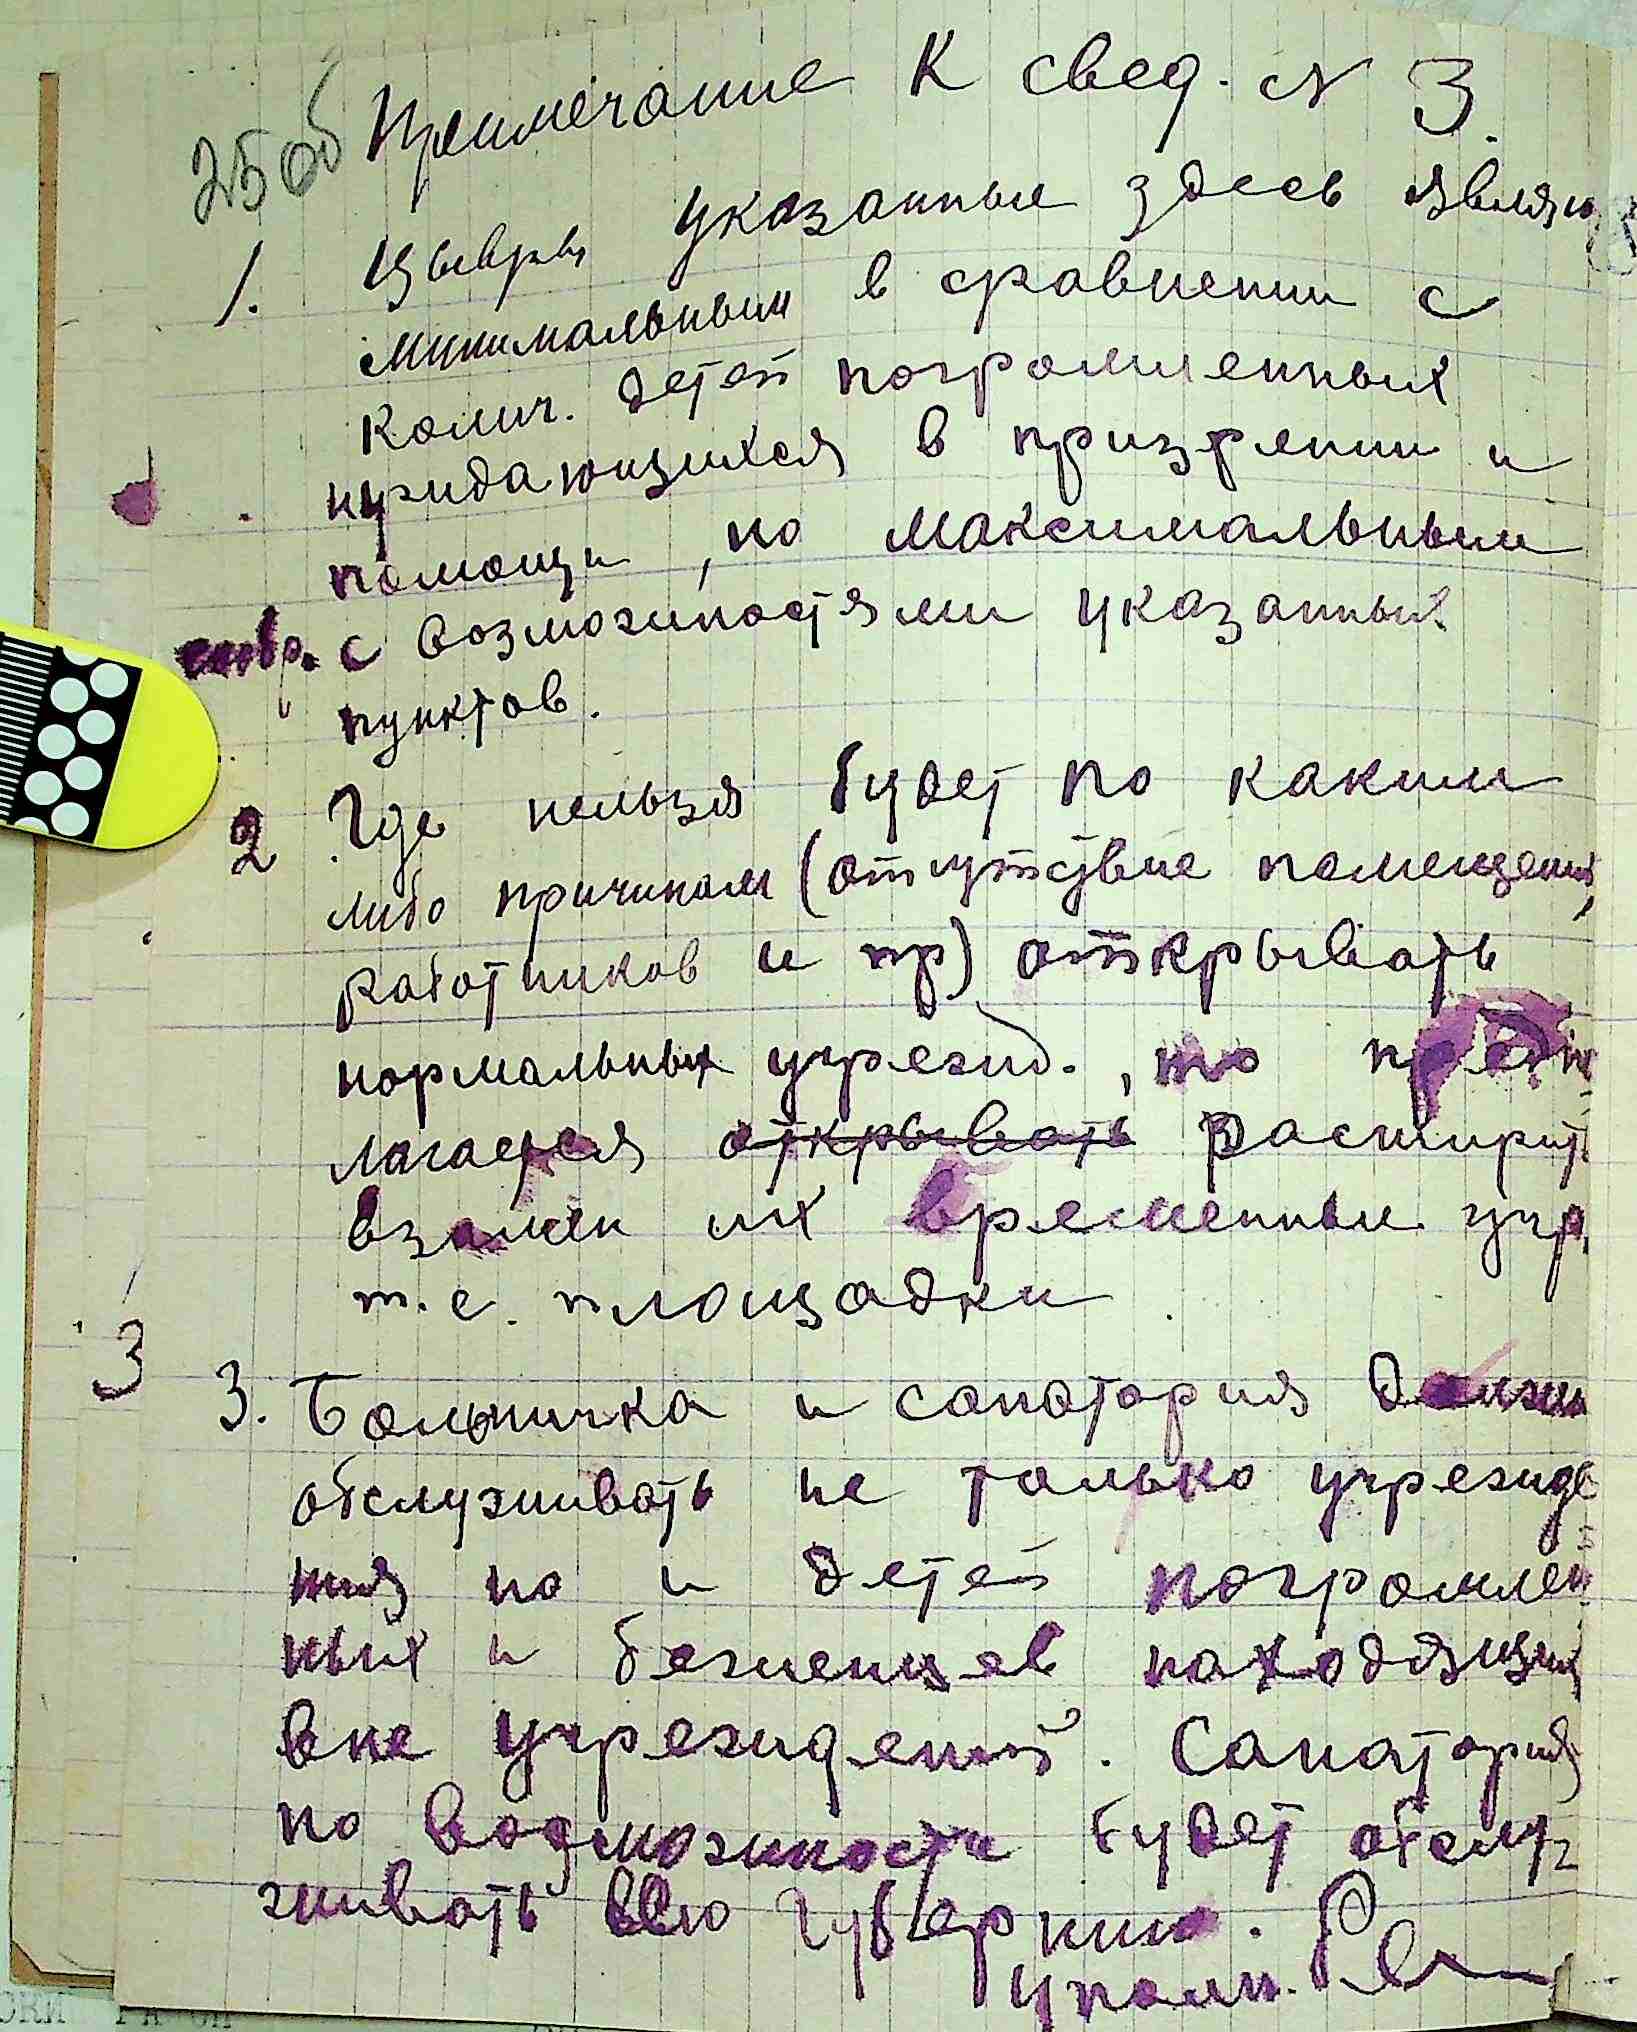 25об Примечание к свед. N 3.
1. Цыфры указанные здесь являю
минимальным в сравнении с
колич. детей погромленных
нуждающихся в призрении и
помощи, но максимальным
с возможностями указанных
пунктов.
2 Где нельзя будет по каким
либо причинам (отсутствие помещения,
работников и пр) открывать
нормальных учрежд., то предпо
лагается открывать расширить
взамен их временные учр.
т. е. площадки.
3
3. Больничка и санатория должны
обслуживать не только учрежде
ния но и детей погромлен
ных и беженцев находящихся
вне учреждений. Санатория
по возможности будет обслу-
живать всю губернию.
Уполн.